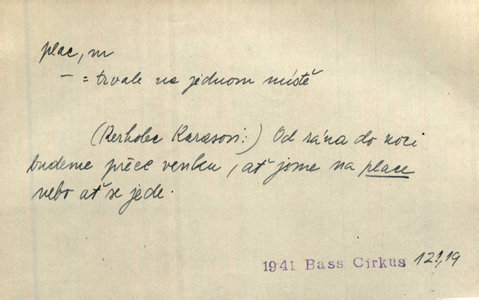 plac, m
– = trvale na jednom místě
(Kerholec Karasovi:) Od rána do noci
budeme přece venku, ať jsme na place
nebo ať se jede.
1941 Bass Cirkus 121,19